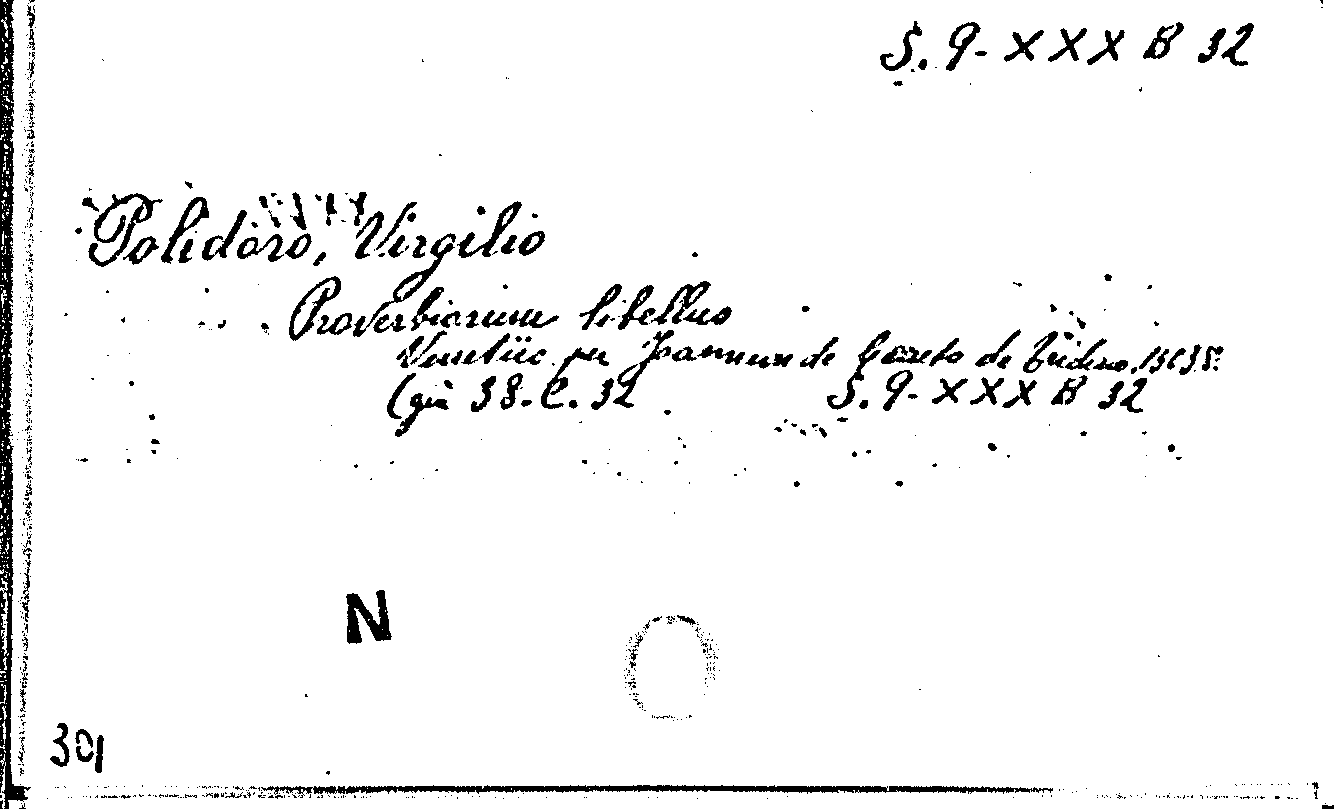 S. 9- XXX B 32
Polidoro, Virgilio
Proverbiorum libellus
Venetiis per Joannem de de
(già 38. C. 32 S. 9- XXX B 32
N
301